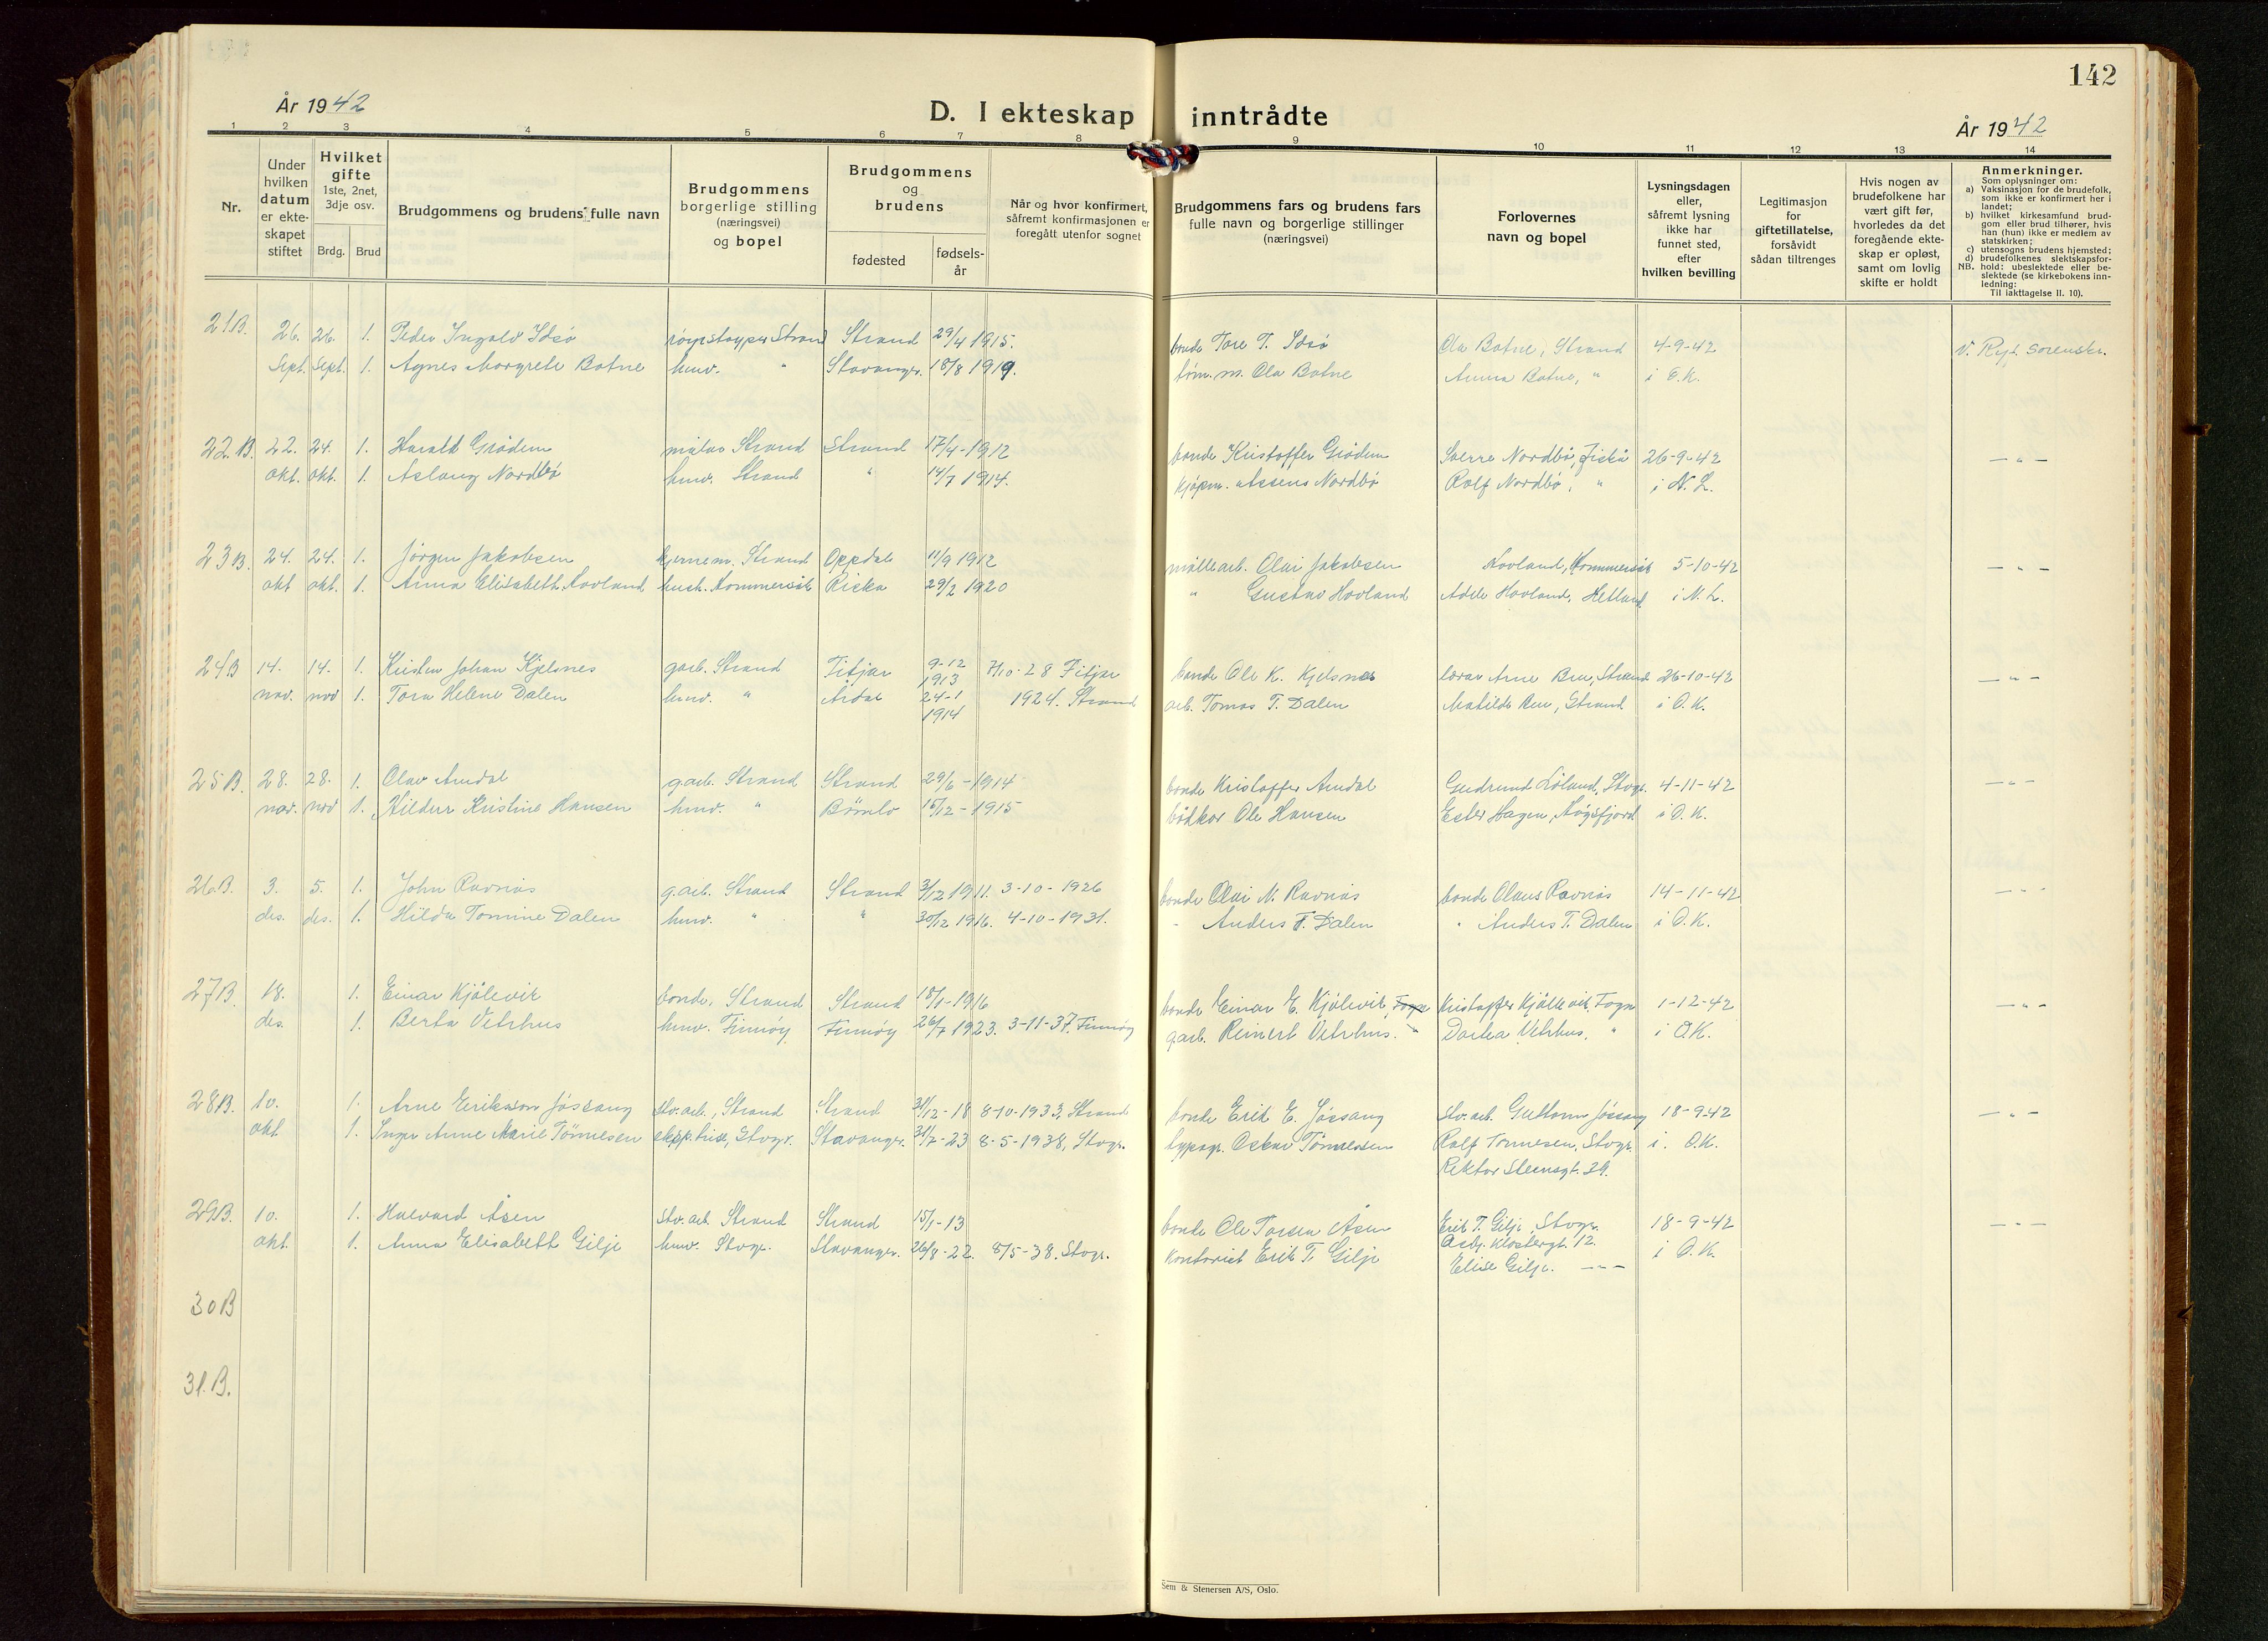 142
År 1942
D. I ekteskap inntrådte
År 1942
1 2 3 4 5 6 7 8 9 10 11 12 13 14
Nr.
Under
hvilken
datum
er ekte-
skapet
stiftet
Hvilket
gifte
1ste, 2net,
3dje osv.
Brdg. Brud
Brudgommens og brudens fulle navn
Brudgommens
borgerlige stilling
(næringsvei)
og bopel
Brudgommens
og
brudens
fødested
fødsels-
år
Når og hvor konfirmert,
såfremt konfirmasjonen er
foregått utenfor sognet
Brudgommens fars og brudens fars
fulle navn og borgerlige stillinger
(næringsvei)
Forlovernes
navn og bopel
Lysningsdagen
eller,
såfremt lysning
ikke har
funnet sted,
efter
hvilken bevilling
Legitimasjon
for
giftetillatelse,
forsåvidt
sådan tiltrenges
Hvis nogen av
brudefolkene har
vært gift før,
hvorledes da det
foregående ekte-
skap er opløst,
samt om lovlig
skifte er holdt
Anmerkninger.
Som oplysninger om:
a) Vaksinasjon for de brudefolk,
som ikke er konfirmert her i
landet;
b) hvilket kirkesamfund brud-
gom eller brud tilhører, hvis
han (hun) ikke er medlem av
statskirken;
c) utensogns brudens hjemsted;
d) brudefolkenes slektskapsfor-
NB. hold: ubeslektede eller be-
slektede (se kirkebokens inn-
ledning:
Til iakttagelse II. 10).
21B. 26. 26. 1. Peder Ingvald Idsø Strand Strand 29/4 1915. bonde Tore T. Idsø Ola Botne, Strand 4-9-42 v. Ryf. Sorenskr.
Sept. Sept. 1. Agnes Margrete Botne husv. " Stavanger. 18/8 1919. tøm.m. Ola Botne Anna Botne, " i O.K.
22.B. 22. 24. 1. Harald Grødem maler Strand Strand 17/4-1912 bonde Kristoffer Grødem Sverre Nordbø, Fiskå 26-9-42 — " —
okt. okt. 1. Aslaug Nordbø husv. Strand " 14/7 1914. kjøpm. Assens Nordbø Rolf Nordbø, " i N.L.
23B. 24. 24. 1. Jørgen Jakobsen Strand Oppdal 11/9 1912 møllearb. Olai Jakobsen Hovland, Hommersåk 5-10-42 — " —
okt okt. 1. Anna Elisabeth Hovland hush. Hommersåk Riska 29/2 1920 " Gustav Hovland Adele Hovland, Hetland i N.L.
24B 14. 14. 1. Kristen Johan Kjelsnes garb. Strand Fitjar 9-12 1913 7/10-28 Fitjar bonde Ole K. Kjelsnes lærer Arne Bru, Strand 26-10-42 — " —
nov. nov 1. Tora Helene Dalen husv. " Årdal 24-1 1914 1924. Strand arb. Tomas T. Dalen Matilde Bru, Strand i O.K.
25B. 28. 28. 1. Olav Amdal garb. Strand Strand 29/6-1914 bonde Kristoffer Amdal Gudrund Løland, Stvgr. 4-11-42 — " —
nov. nov 1. Hildur Kristine Hansen husv. " Bømlo 15/12-1915 bødker Ole Hansen Ester Hagen, Høgsfjord i O.K.
26B. 3. 5. 1. John Ravnås g.arb. Strand Strand 3/12 1911. 3-10-1926 bonde Olai N. Ravnås bonde Olaus Ravnås 14-11-42 — " —
des. des. 1. Hilda Tomine Dalen husv. " " 30/12 1916. 4-10-1931. " Anders T. Dalen " Anders T. Dalen i O.K.
27B. 18. 1. Einar Kjølevik bonde, Strand Strand 18/1-1916 bonde Einar E. Kjølevik, Fogn Kristoffer Kjøllevik, Fogn 1-12-42 — " —
des. 1. Berta Vetrhus husv. Finnøy Finnøy 26/7 1923. 3-11-37. Finnøy garb. Reinert Vetrhus. " Dortea Vetrhus, " i O.K.
28B. 10. 1. Arne Erikson Jøssang stv.arb., Strand Strand 31/12-18 8-10-1933, Strand bonde Erik E. Jøssang stv.arb. Guttorm Jøssang 18-9-42 — " —
okt. 1. Inger Anne Marie Tønnesen eksp.trise, Stvgr. Stavanger. 31/7-23 8-5-1938, Stvgr. typogr. Oskar Tønnesen Rolf Tønnesen, Stvgr. i. O.K.
Rektor Steensgt. 29.
29B. 10. 1. Halvard Åsen stv.arb. Strand Strand 15/1-13 bonde Ole Torsen Åsen Erik T. Gilje, Stvgr. 18-9-42 — " —
okt. 1. Anna Elisabeth Gilje husv. Stvgr. Stavanger. 26/8-22. 8/5-38. Stvgr. kontorist Erik T. Gilje Asbj. Klostergt. 12. i O.K.
Elise Gilje. — " —
30B
31.B.
Sem & Stenersen A/S, Oslo.